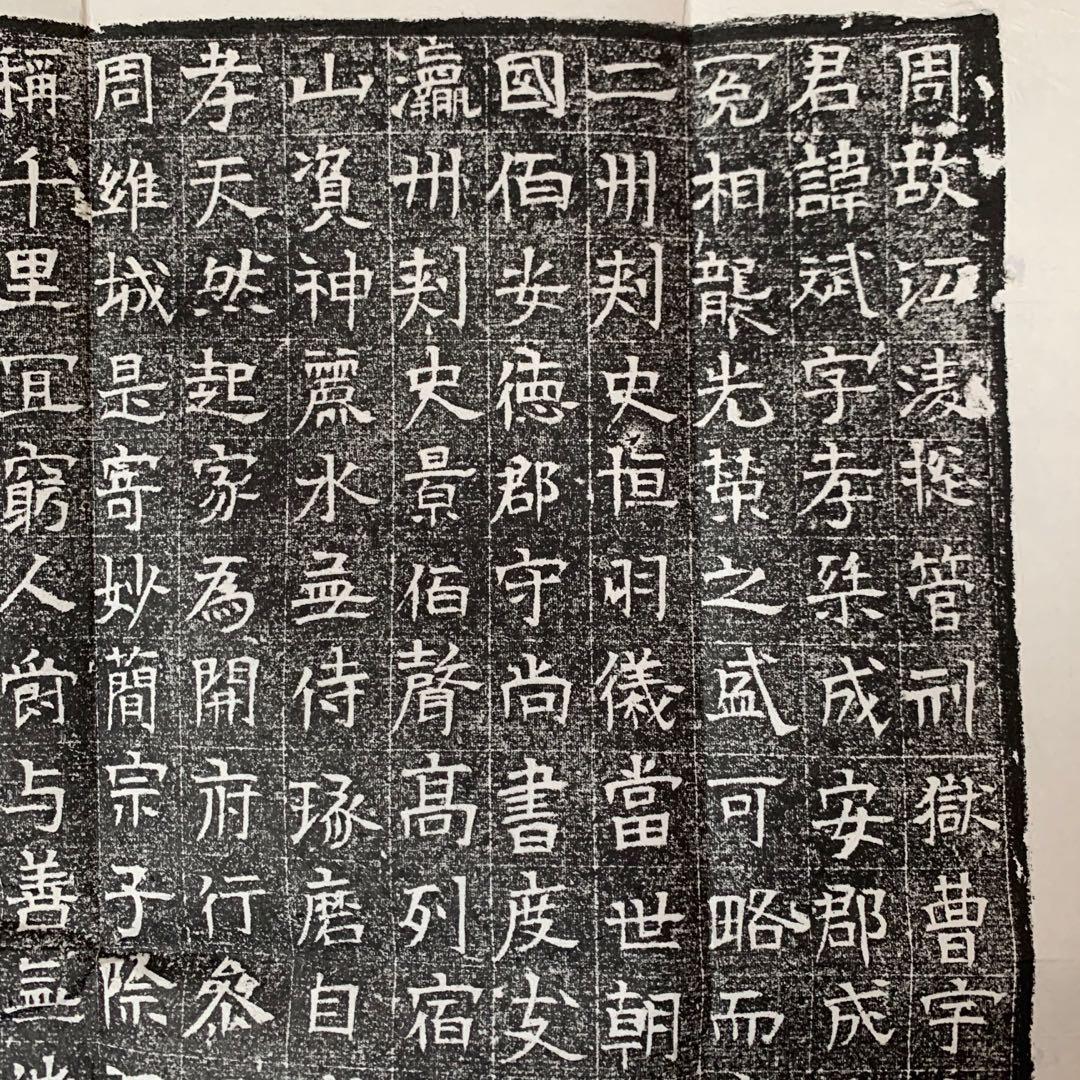 周故江淩揔管刑獄曹宇
君諱斌字孝桀成安郡成
冕相襲光榮之盛可略而
二州刾史恒羽儀當世朝
國佰安德郡守尚書度支
瀛州刾史景佰聲高列宿
山資神麗水無侍琢磨自
孝天然起家為開府行參
周維城是寄妙簡宗子除
稱千里宜窮人爵与善無